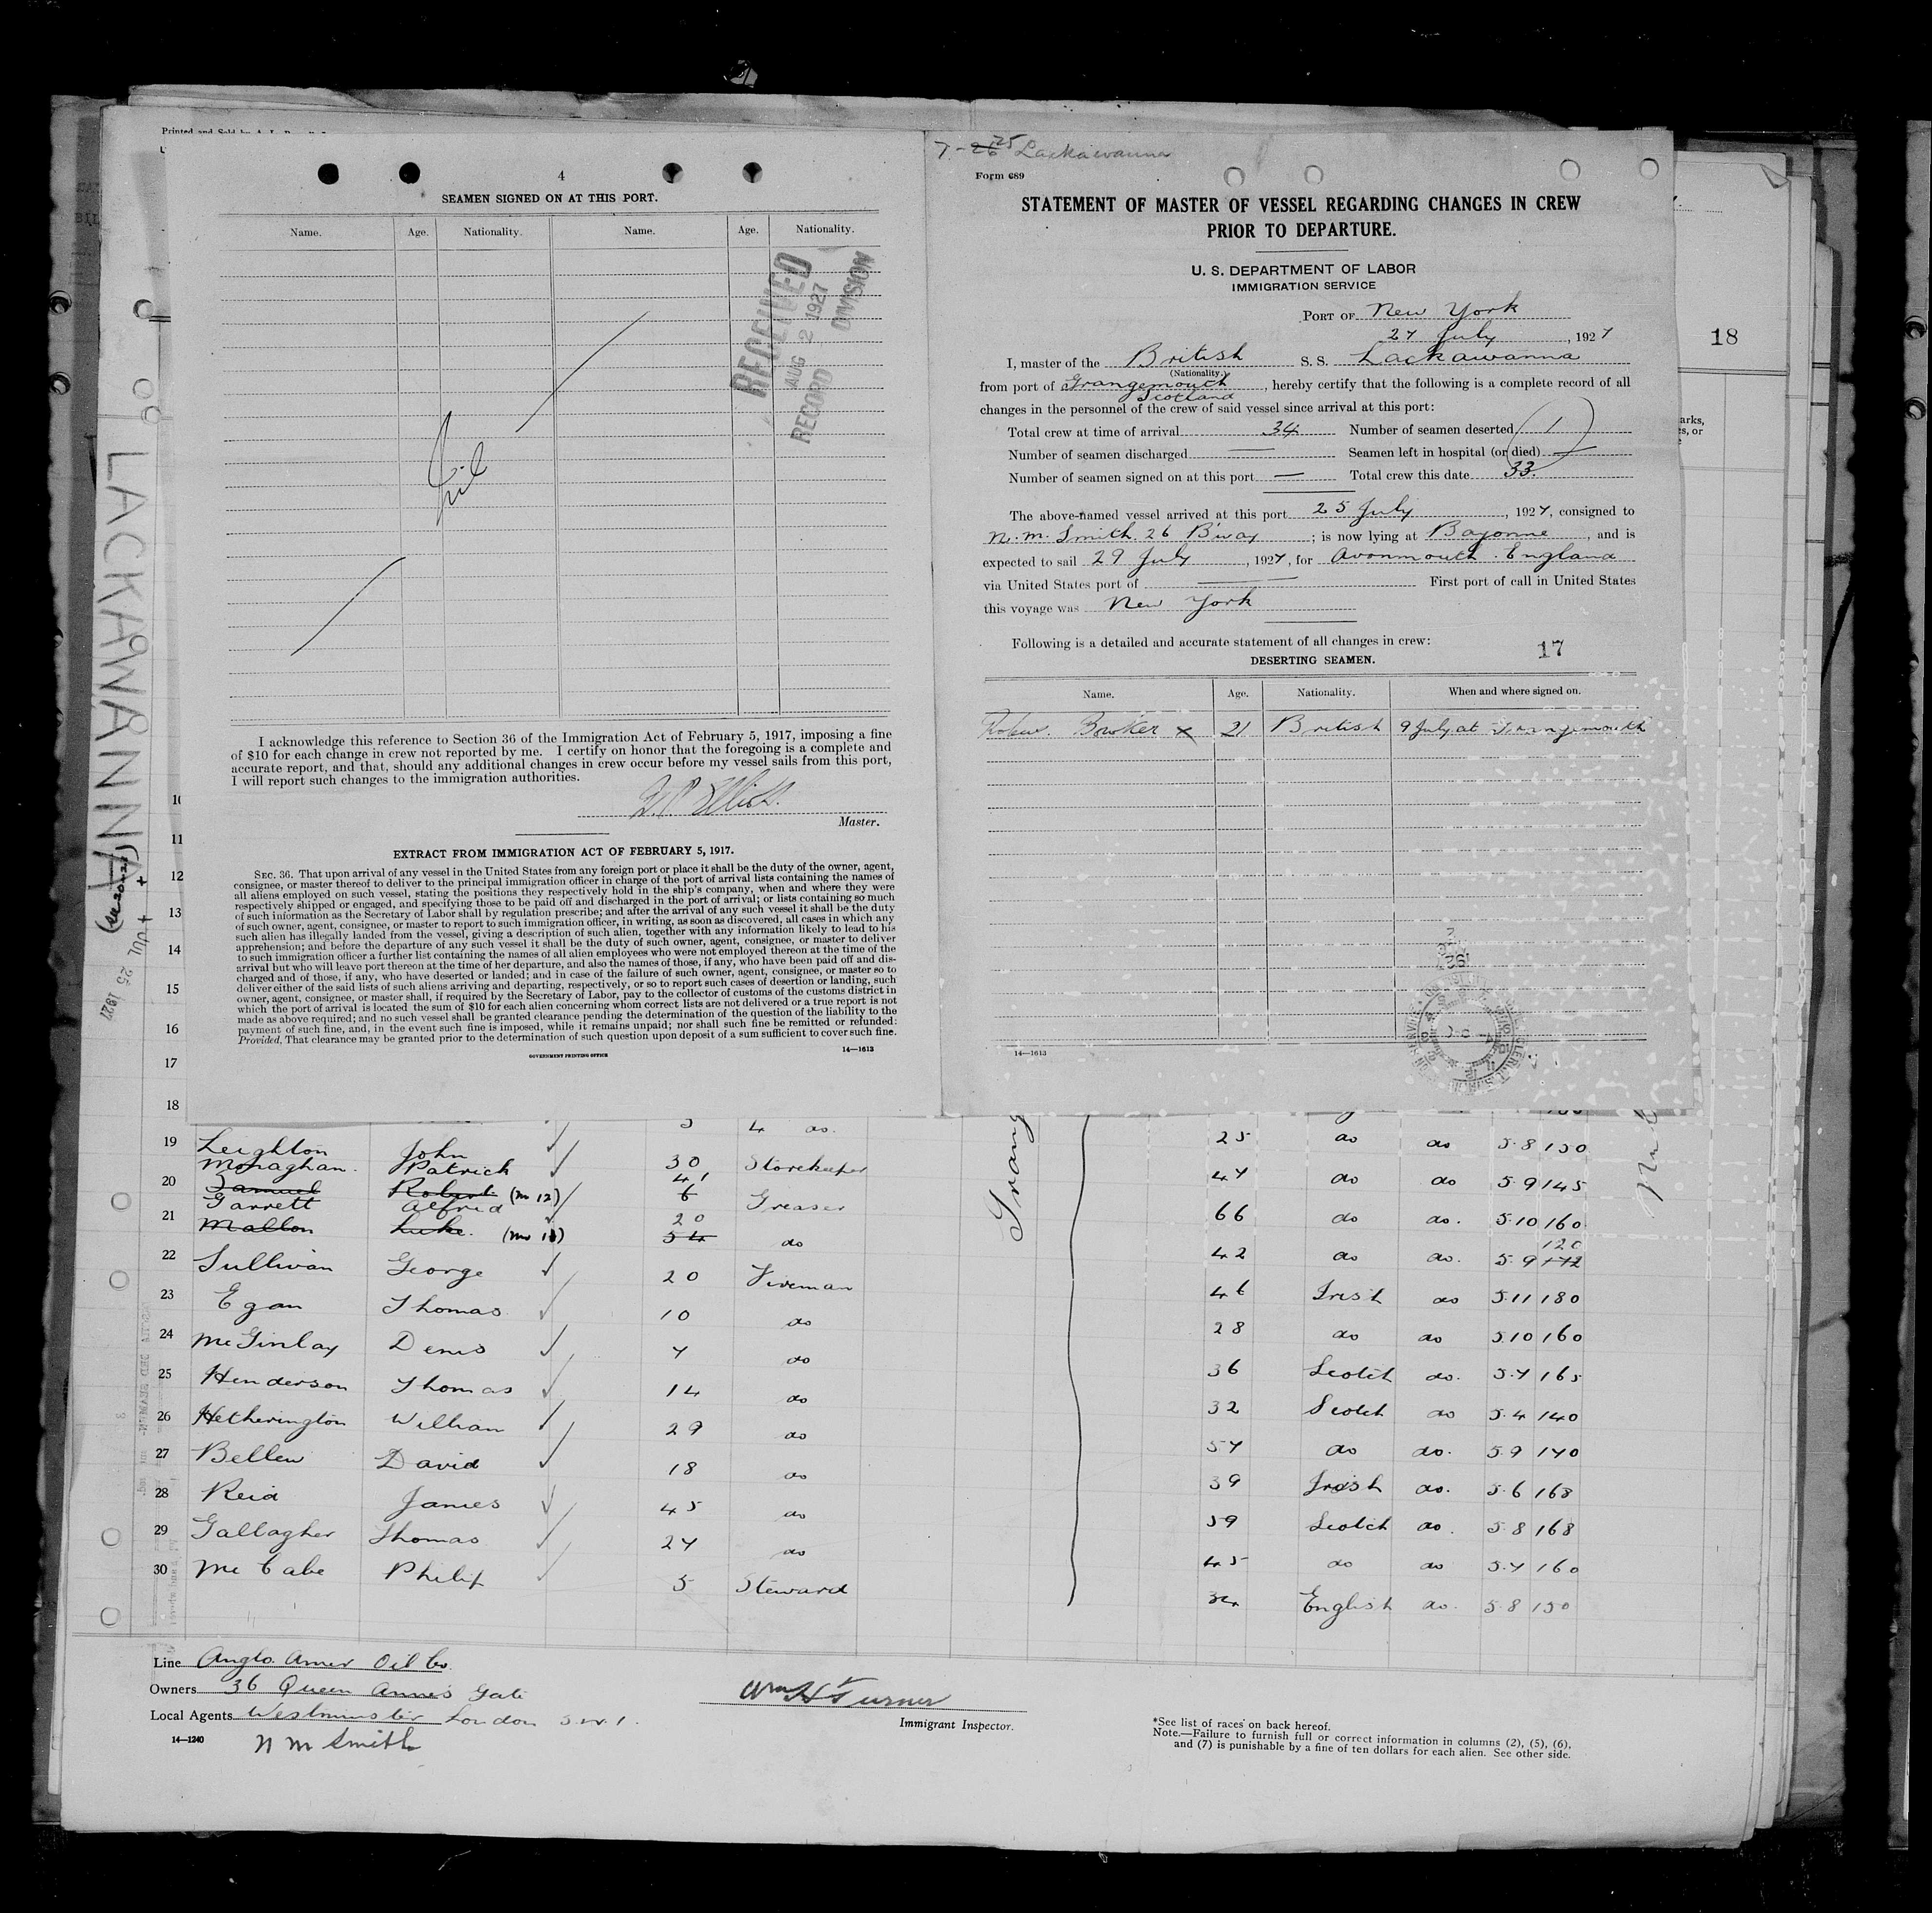 4
SEAMEN SIGNED ON AT THIS PORT.
Name. Age. Nationality. Name. Age. Nationality.
RECEIVED
AUG 2 1927
RECORD DIVISION
Nil
I acknowledge this reference to Section 36 of the Immigration Act of February 5, 1917, imposing a fine
of $10 for each change in crew not reported by me. I certify on honor that the foregoing is a complete and
accurate report, and that, should any additional changes in crew occur before my vessel sails from this port,
I will report such changes to the immigration authorities.
Elliott.
Master.
EXTRACT FROM IMMIGRATION ACT OF FEBRUARY 5, 1917.
SEC. 36. That upon arrival of any vessel in the United States from any foreign port or place it shall be the duty of the owner, agent,
consignee, or master thereof to deliver to the principal immigration officer in charge of the port of arrival lists containing the names of
all aliens employed on such vessel, stating the positions they respectively hold in the ship's company, when and where they were
respectively shipped or engaged, and specifying those to be paid off and discharged in the port of arrival; or lists containing so much
of such information as the Secretary of Labor shall by regulation prescribe; and after the arrival of any such vessel it shall be the duty
of such owner, agent, consignee, or master to report to such immigration officer, in writing, as soon as discovered, all cases in which any
such alien has illegally landed from the vessel, giving a description of such alien, together with any information likely to lead to his
apprehension; and before the departure of any such vessel it shall be the duty of such owner, agent, consignee, or master to deliver
to such immigration officer a further list containing the names of all alien employees who were not employed thereon at the time of the
arrival but who will leave port thereon at the time of her departure, and also the names of those, if any, who have been paid off and dis-
charged and of those, if any, who have deserted or landed; and in case of the failure of such owner, agent, consignee, or master so to
deliver either of the said lists of such aliens arriving and departing, respectively, or so to report such cases of desertion or landing, such
owner, agent, consignee, or master shall, if required by the Secretary of Labor, pay to the collector of customs of the customs district in
which the port of arrival is located the sum of $10 for each alien concerning whom correct lists are not delivered or a true report is not
made as above required; and no such vessel shall be granted clearance pending the determination of the question of the liability to the
payment of such fine, and, in the event such fine is imposed, while it remains unpaid; nor shall such fine be remitted or refunded:
Provided, That clearance may be granted prior to the determination of such question upon deposit of a sum sufficient to cover such fine.
GOVERNMENT PRINTING OFFICE 14—1613
7-26 25 Lackawanna
Form 689
STATEMENT OF MASTER OF VESSEL REGARDING CHANGES IN CREW
PRIOR TO DEPARTURE.
U. S. DEPARTMENT OF LABOR
IMMIGRATION SERVICE
PORT OF New York
27 July, 1927
I, master of the British S. S. Lackawanna
(Nationality.)
from port of Grangemouth, hereby certify that the following is a complete record of all
Scotland
changes in the personnel of the crew of said vessel since arrival at this port:
Total crew at time of arrival 34 Number of seamen deserted 1
Number of seamen discharged — Seamen left in hospital (or died) —
Number of seamen signed on at this port — Total crew this date 33.
The above-named vessel arrived at this port 25 July, 1927, consigned to
N. M. Smith. 26 B'way; is now lying at Bayonne, and is
expected to sail 29 July, 1927, for Avonmouth. England
via United States port of — First port of call in United States
this voyage was New York
Following is a detailed and accurate statement of all changes in crew:
17
DESERTING SEAMEN.
Name. Age. Nationality. When and where signed on.
Bowker x 21 British 9 July at Grangemouth
14—1613
18
LACKAWANNA
JUL 25 1927
10
11
12
13
14
15
16
17
18
19 Leighton John 3 4 do. 25 do do 5.8 150
Monaghan. Patrick 30 Storekeeper 47 do do 5.9 145
20 Samuel Robert (no 12) 41 6 Greaser 66 do do. 5.10 160
Garrett Alfred
21 Mallon Luke. (no 13) 20 54 do 42 do do. 5.9 120 172
22 Sullivan George 20 Fireman 46 Irish do 5.11 180
23 Egan Thomas 10 do 28 do do 5.10 160
24 McGinlay Denis 7 do 36 Scotch do. 5.7 165
25 Henderson Thomas 14 do 32 Scotch do 5.4 140
26 Hetherington William 29 do 57 do do. 5.9 170
27 Bellew David 18 do 39 Irish do. 5.6 168
28 Reid James 45 do 59 Scotch do. 5.8 168
29 Gallagher Thomas 27 do 45 do do 5.7 160
30 McCabe Philip 5 Steward 34 English do. 5.8 150
Line Anglo. Amer Oil Co.
Owners 36 Queen Anne's Gate
Local Agents Westminster London S.W.1.
14—1240 N M Smith
Wm H Turner
Immigrant Inspector.
*See list of races on back hereof.
Note.—Failure to furnish full or correct information in columns (2), (5), (6),
and (7) is punishable by a fine of ten dollars for each alien. See other side.